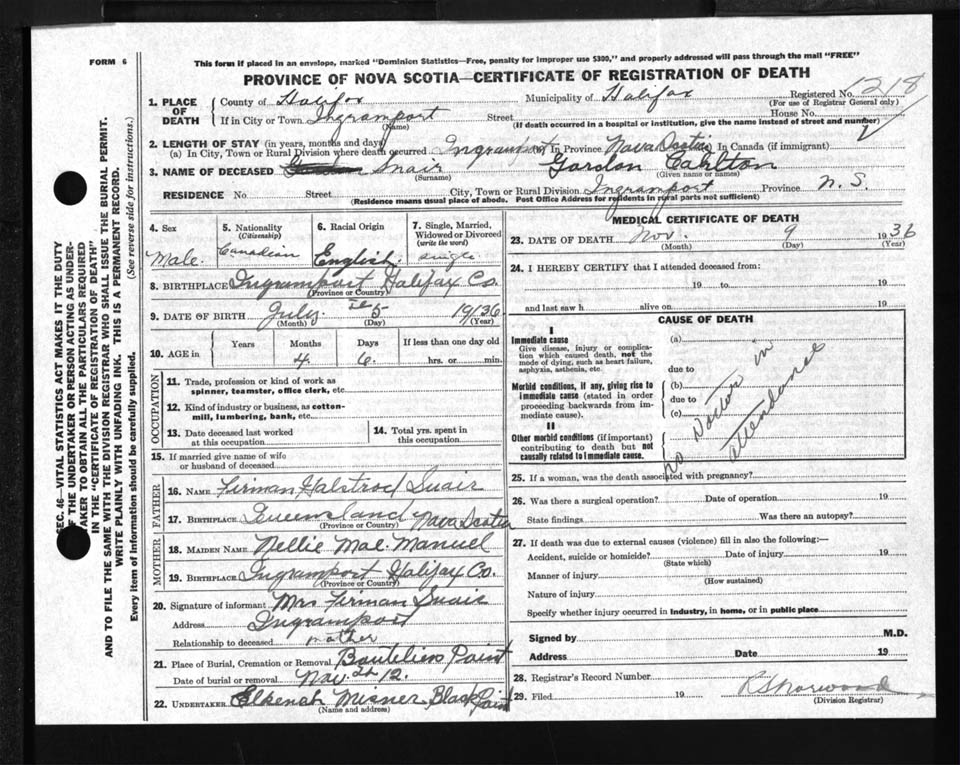 FORM 6
This form if placed in an envelope, marked "Dominion Statistics—Free, penalty for improper use $300," and properly addressed will pass through the mail "FREE"
PROVINCE OF NOVA SCOTIA—CERTIFICATE OF REGISTRATION OF DEATH
Registered No. 1218
(For use of Registrar General only)
1. PLACE OF DEATH
County of Halifax Municipality of Halifax
If in City or Town Ingramport Street House No.
(Name) (If death occurred in a hospital or institution, give the name instead of street and number)
2. LENGTH OF STAY (in years, months and days)
(a) In City, Town or Rural Division where death occurred Ingramport (b) In Province Nova Scotia In Canada (if immigrant)
3. NAME OF DECEASED Snair Gordon Carlton
(Surname) (Given name or names)
RESIDENCE No. Street City, Town or Rural Division Ingramport Province N. S.
(Residence means usual place of abode. Post Office Address for residents in rural parts not sufficient)
4. Sex
Male.
5. Nationality
(Citizenship)
Canadian
6. Racial Origin
English
7. Single, Married, Widowed or Divorced
(write the word)
Single
8. BIRTHPLACE Ingramport Halifax Co.
(Province or Country)
9. DATE OF BIRTH July 5 1936
(Month) (Day) (Year)
10. AGE in
Years Months Days If less than one day old
4 6 hrs. or min.
OCCUPATION
11. Trade, profession or kind of work as
spinner, teamster, office clerk, etc.
12. Kind of industry or business, as cotton-
mill, lumbering, bank, etc.
13. Date deceased last worked
at this occupation
14. Total yrs. spent in
this occupation
15. If married give name of wife
or husband of deceased
FATHER
16. NAME Firman Snair
17. BIRTHPLACE Queensland Nova Scotia
(Province or Country)
MOTHER
18. MAIDEN NAME Nellie Mae Manuel
19. BIRTHPLACE Ingramport Halifax Co.
(Province or Country)
20. Signature of informant Mrs Firman Snair
Address Ingramport
Relationship to deceased mother
21. Place of Burial, Cremation or Removal Point
Date of burial or removal Nov. 12.
22. UNDERTAKER Elkenah Misner, Black Point
(Name and address)
MEDICAL CERTIFICATE OF DEATH
23. DATE OF DEATH Nov. 9 1936
(Month) (Day) (Year)
24. I HEREBY CERTIFY that I attended deceased from:
19 to 19
and last saw h alive on 19
CAUSE OF DEATH
I
Immediate cause
Give disease, injury or complica-
tion which caused death, not the
mode of dying, such as heart failure,
asphyxia, asthenia, etc.
(a)
due to
Morbid conditions, if any, giving rise to
immediate cause (stated in order
proceeding backwards from im-
mediate cause).
(b)
due to
(c)
II
Other morbid conditions (if important)
contributing to death but not
causally related to immediate cause.
no Doctor in
attendance
25. If a woman, was the death associated with pregnancy?
26. Was there a surgical operation? Date of operation 19
State findings Was there an autopsy?
27. If death was due to external causes (violence) fill in also the following:—
Accident, suicide or homicide? Date of injury 19
(State which)
Manner of injury
(How sustained)
Nature of injury
Specify whether injury occurred in industry, in home, or in public place
Signed by M.D.
Address Date 19
28. Registrar's Record Number
29. Filed 19 R S Norwood
(Division Registrar)
SEC. 46—VITAL STATISTICS ACT MAKES IT THE DUTY
OF THE UNDERTAKER OR PERSON ACTING AS UNDER-
TAKER TO OBTAIN ALL THE PARTICULARS REQUIRED
IN THE "CERTIFICATE OF REGISTRATION OF DEATH"
AND TO FILE THE SAME WITH THE DIVISION REGISTRAR WHO SHALL ISSUE THE BURIAL PERMIT.
WRITE PLAINLY WITH UNFADING INK. THIS IS A PERMANENT RECORD.
Every item of Information should be carefully supplied. (See reverse side for instructions.)